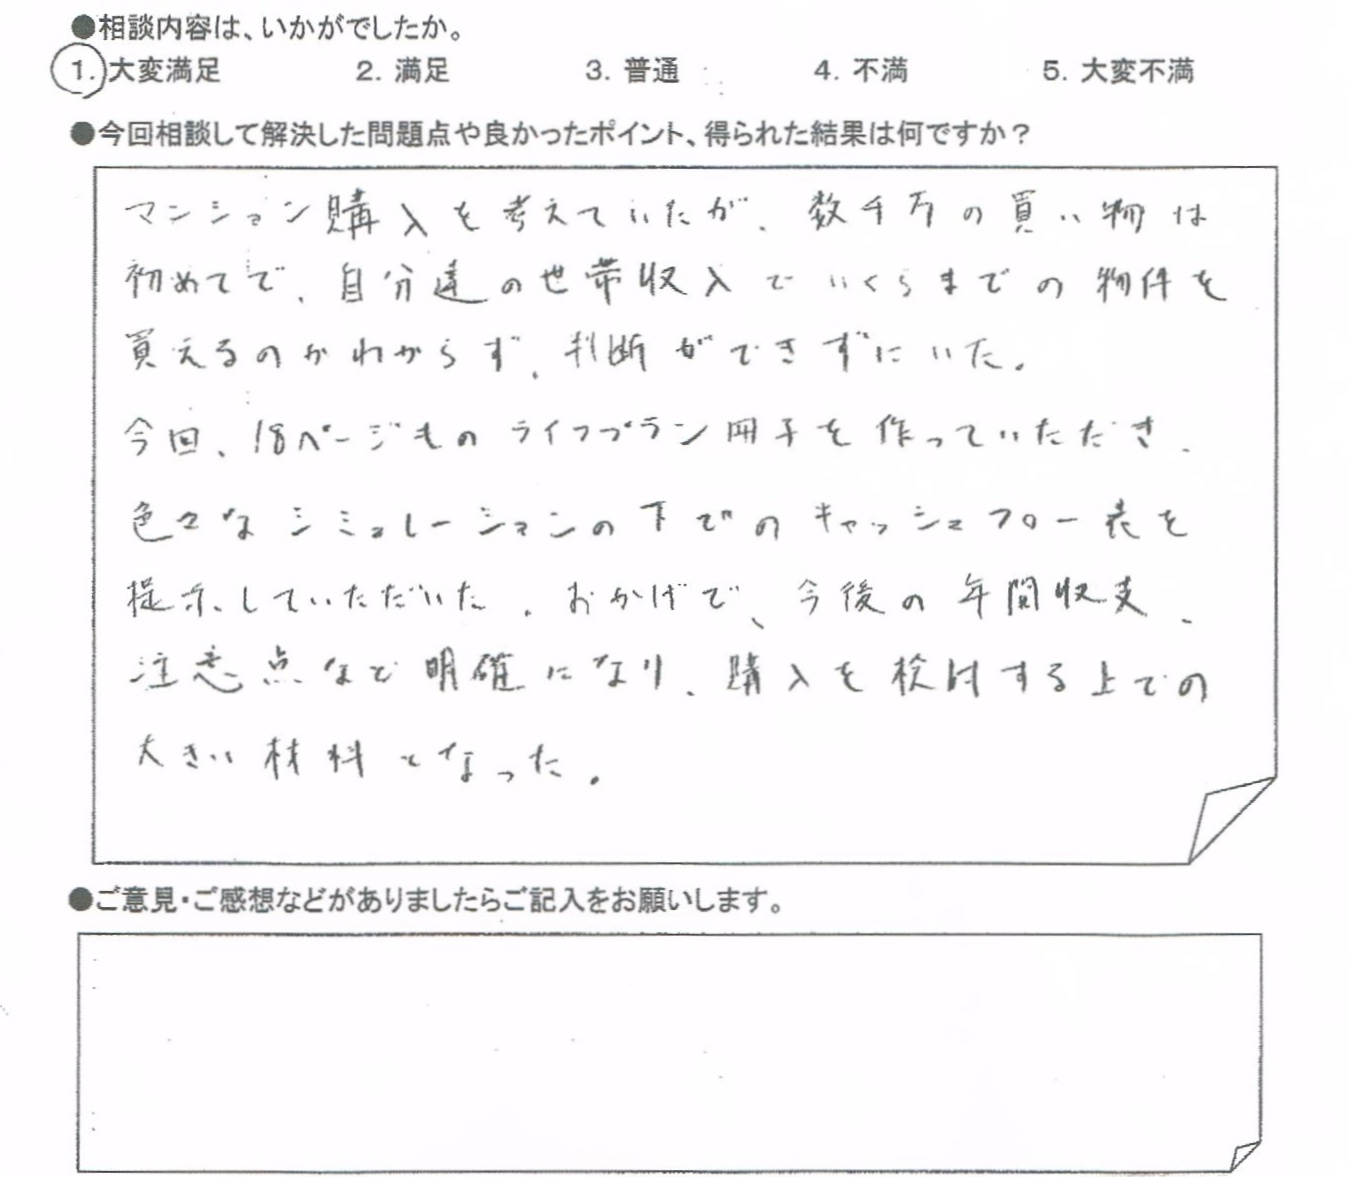 ●相談内容は、いかがでしたか。
1. 大変満足 2. 満足 3. 普通 4. 不満 5. 大変不満
●今回相談して解決した問題点や良かったポイント、得られた結果は何ですか？
マンション購入を考えていたが、数千万の買い物は
初めてで、自分達の世帯収入でいくらまでの物件を
買えるのかわからず、判断ができずにいた。
今回、18ページものライフプラン冊子を作っていただき、
色々なシミュレーションの下でのキャッシュフロー表を
提示していただいた。おかげで、今後の年間収支、
注意点など明確になり、購入を検討する上での
大きい材料となった。
●ご意見・ご感想などがありましたらご記入をお願いします。